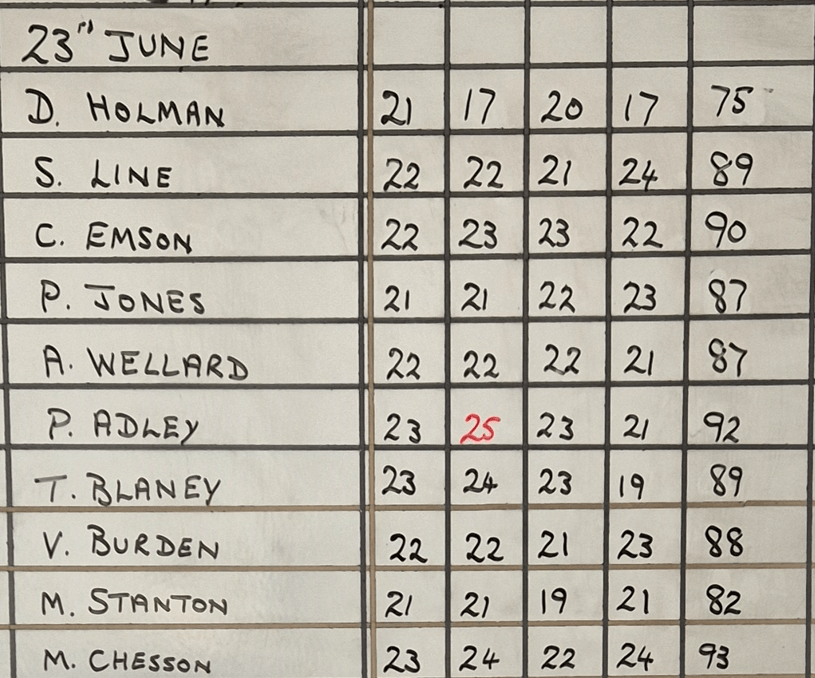 23rd JUNE
D. HOLMAN 21 17 20 17 75
S. LINE 22 22 21 24 89
C. EMSON 22 23 23 22 90
P. JONES 21 21 22 23 87
A. WELLARD 22 22 22 21 87
P. ADLEY 23 25 23 21 92
T. BLANEY 23 24 23 19 89
V. BURDEN 22 22 21 23 88
M. STANTON 21 21 19 21 82
M. CHESSON 23 24 22 24 93